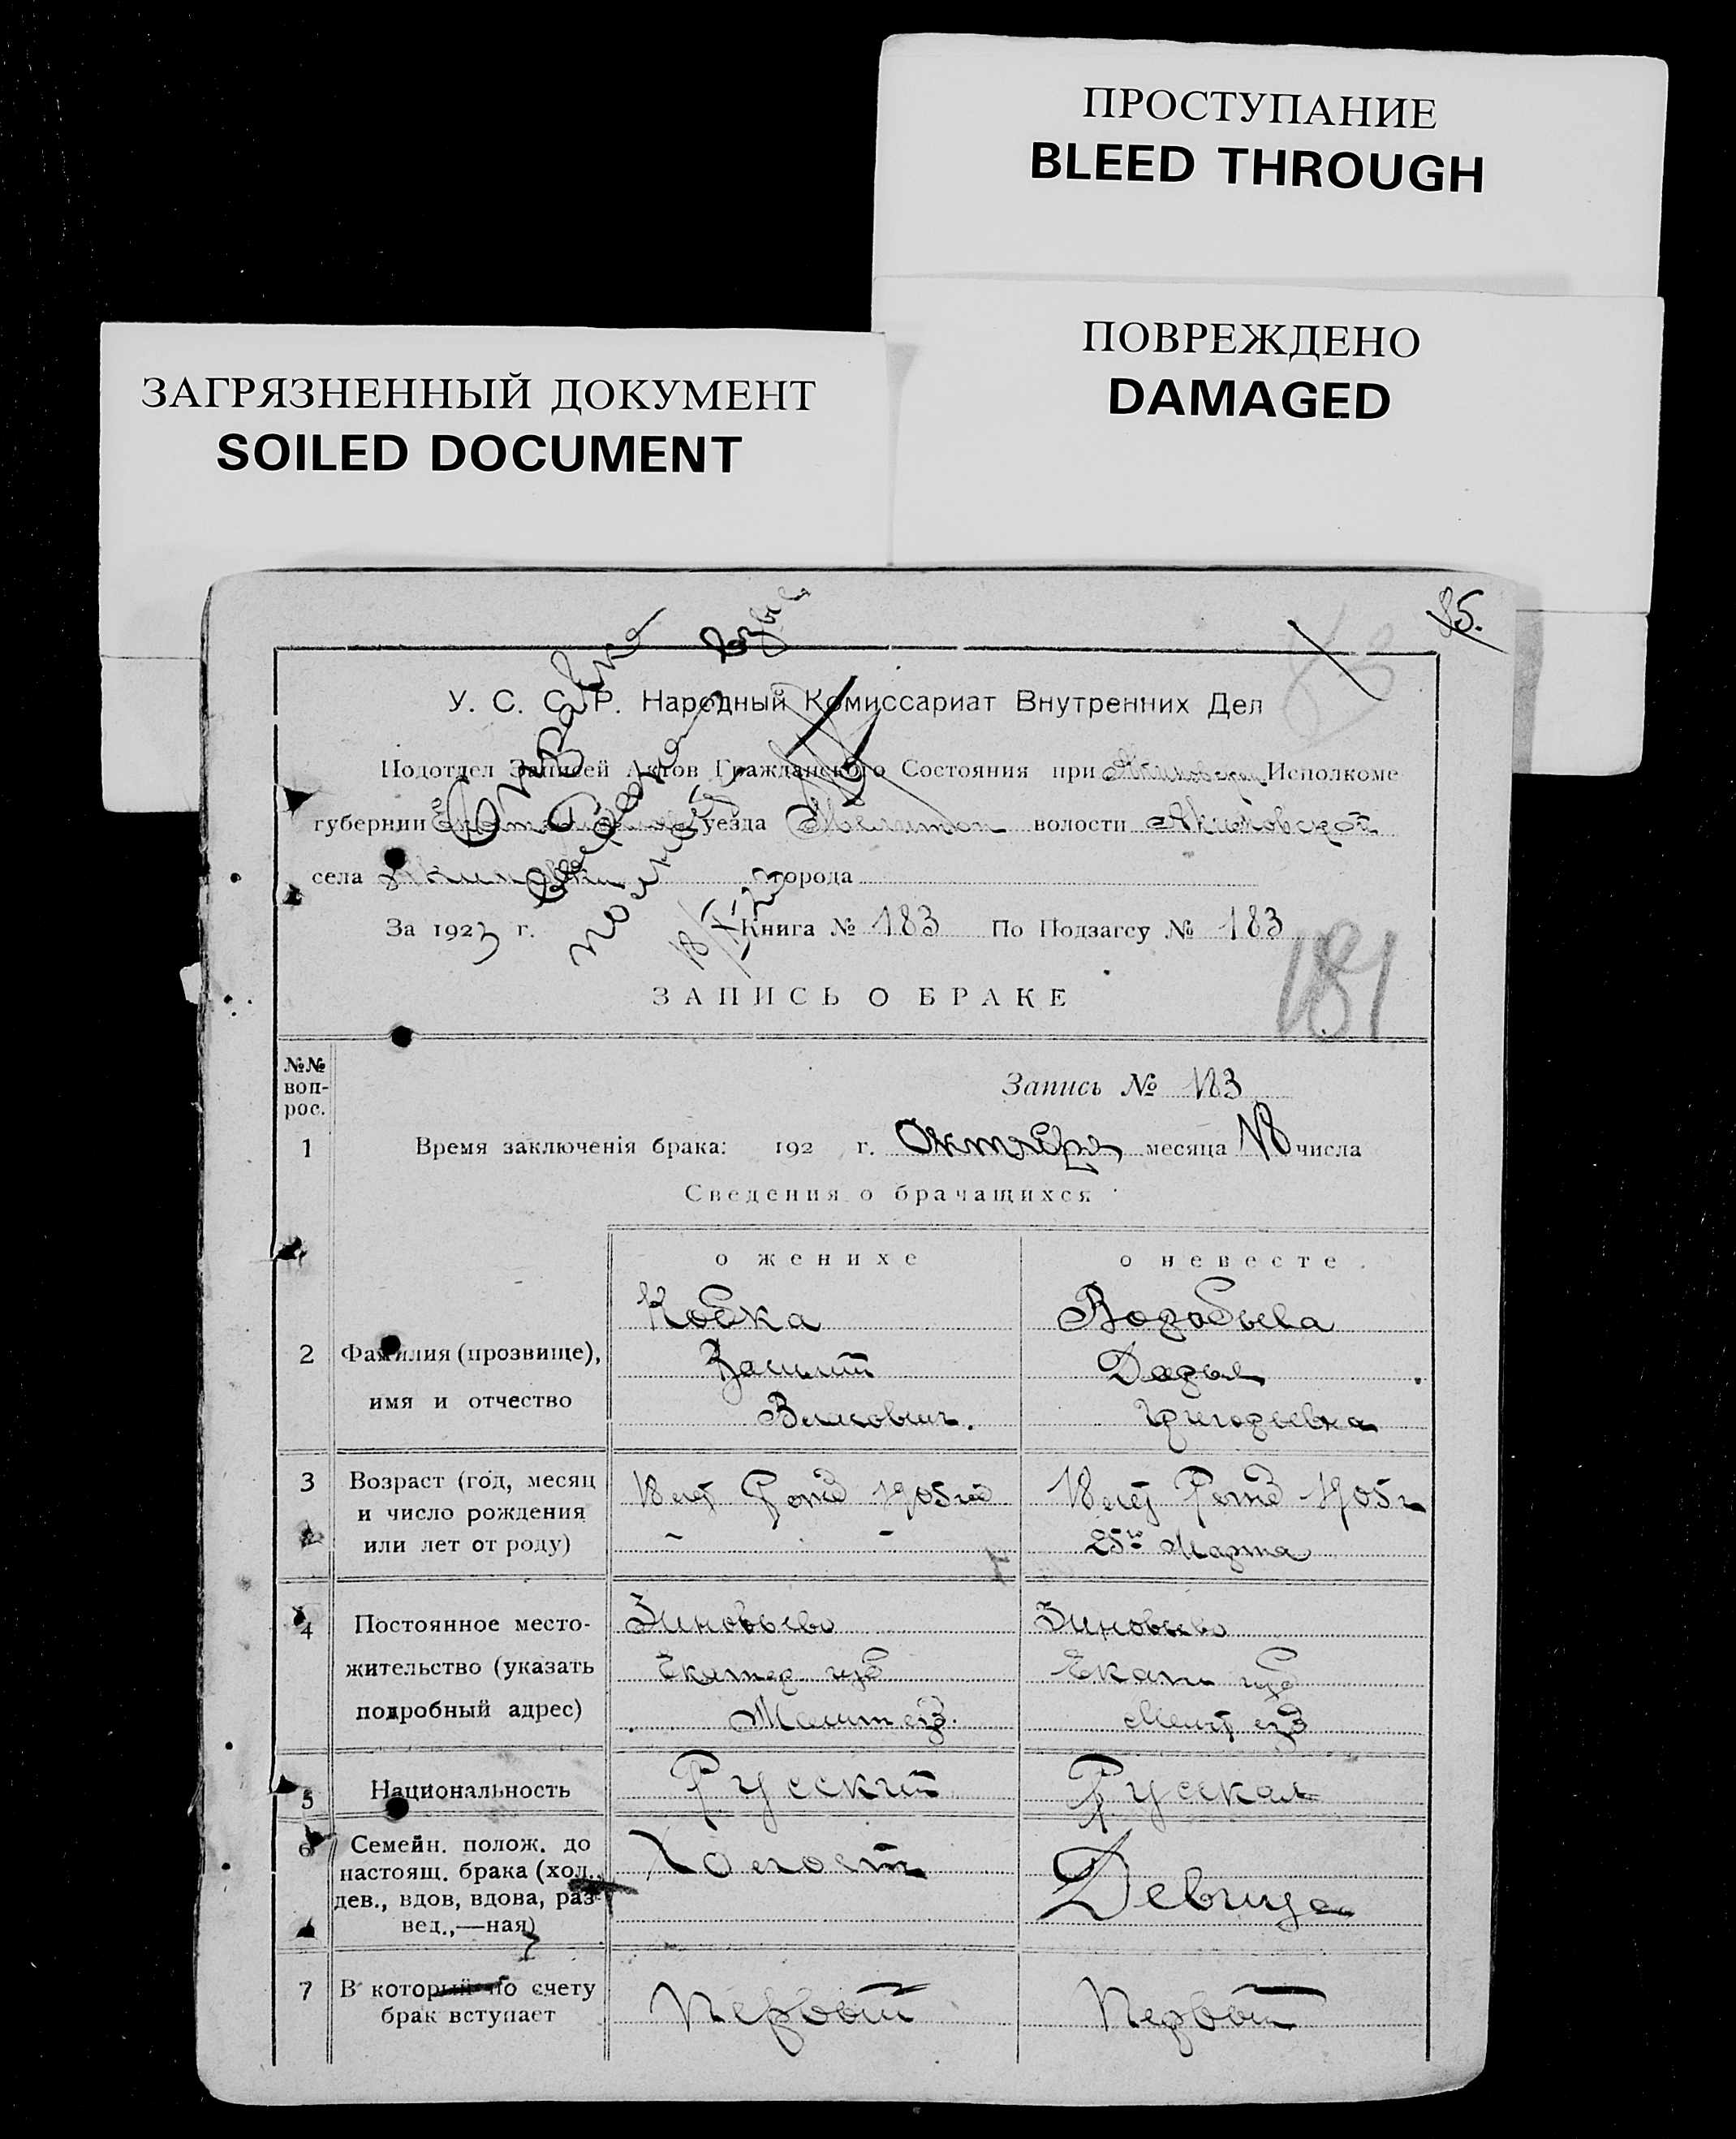 ПРОСТУПАНИЕ
BLEED THROUGH
ПОВРЕЖДЕНО
DAMAGED
ЗАГРЯЗНЕННЫЙ ДОКУМЕНТ
SOILED DOCUMENT
85.
У. С. С. Р. Народный Комиссариат Внутренних Дел
Подотдел Записей Актов Гражданского Состояния при Акимовском Исполкоме
губернии уезда Мелитоп волости Акимовской
села Акимовки города
За 1923 г. Книга № 183 По Подзагсу № 183
Справка
181
ЗАПИСЬ О БРАКЕ
№№ воп-рос.
Запись № 183
1 Время заключенія брака: 192 г. Октября месяца 18 числа
Сведения о брачащихся
о женихе о невесте.
Кобка Воробьева
2 Фамилия (прозвище), Василий Дарья
имя и отчество Григорьевна
3 Возраст (год, месяц 18 лет Рожд 1905 18 лет Рожд 1905 г
и число рождения - - 25го Марта
или лет от роду)
4 Постоянное место- Зиновьево Зиновьево
жительство (указать Екатер губ Екат губ
подробный адрес) Мелит уез. Мелит уез
5 Национальность Русский Русская
6 Семейн. полож. до Холост Девица
настоящ. брака (хол.,
дев., вдов, вдова, раз-
вед.,—ная)
7 В который по счету Первый Первый
брак вступает